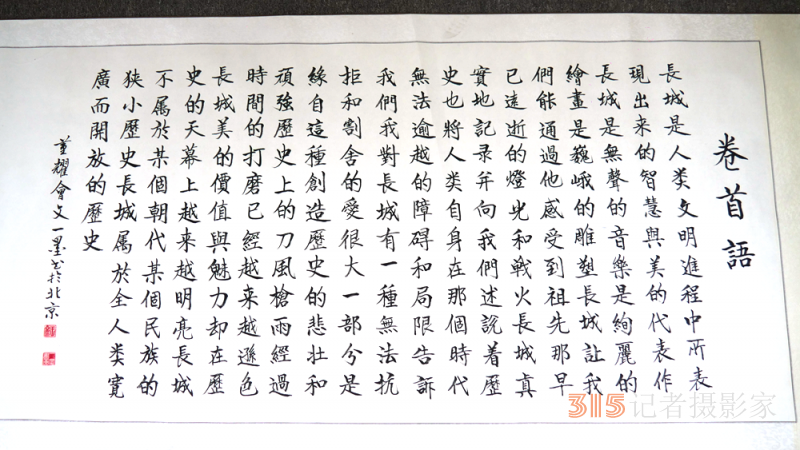 卷首語
長城是人类文明進程中所表
現出来的智慧與美的代表作
長城是無聲的音樂是絢麗的
繪畫是巍峨的雕塑長城讓我
們能通過他感受到祖先那早
已遠逝的燈光和戰火長城真
實地記录并向我們述說着歷
史也將人类自身在那個時代
無法逾越的障碍和局限告訴
我們我對長城有一種無法抗
拒和割舍的愛很大一部分是
緣自這種創造歷史的悲壯和
頑強歷史上的刀風槍雨經過
時間的打磨已經越来越遜色
長城美的價值與魅力却在歷
史的天幕上越来越明亮長城
不属於某個朝代某個民族的
狭小歷史長城属於全人类寬
廣而開放的歷史
董耀會文一墨书於北京
315记者摄影家